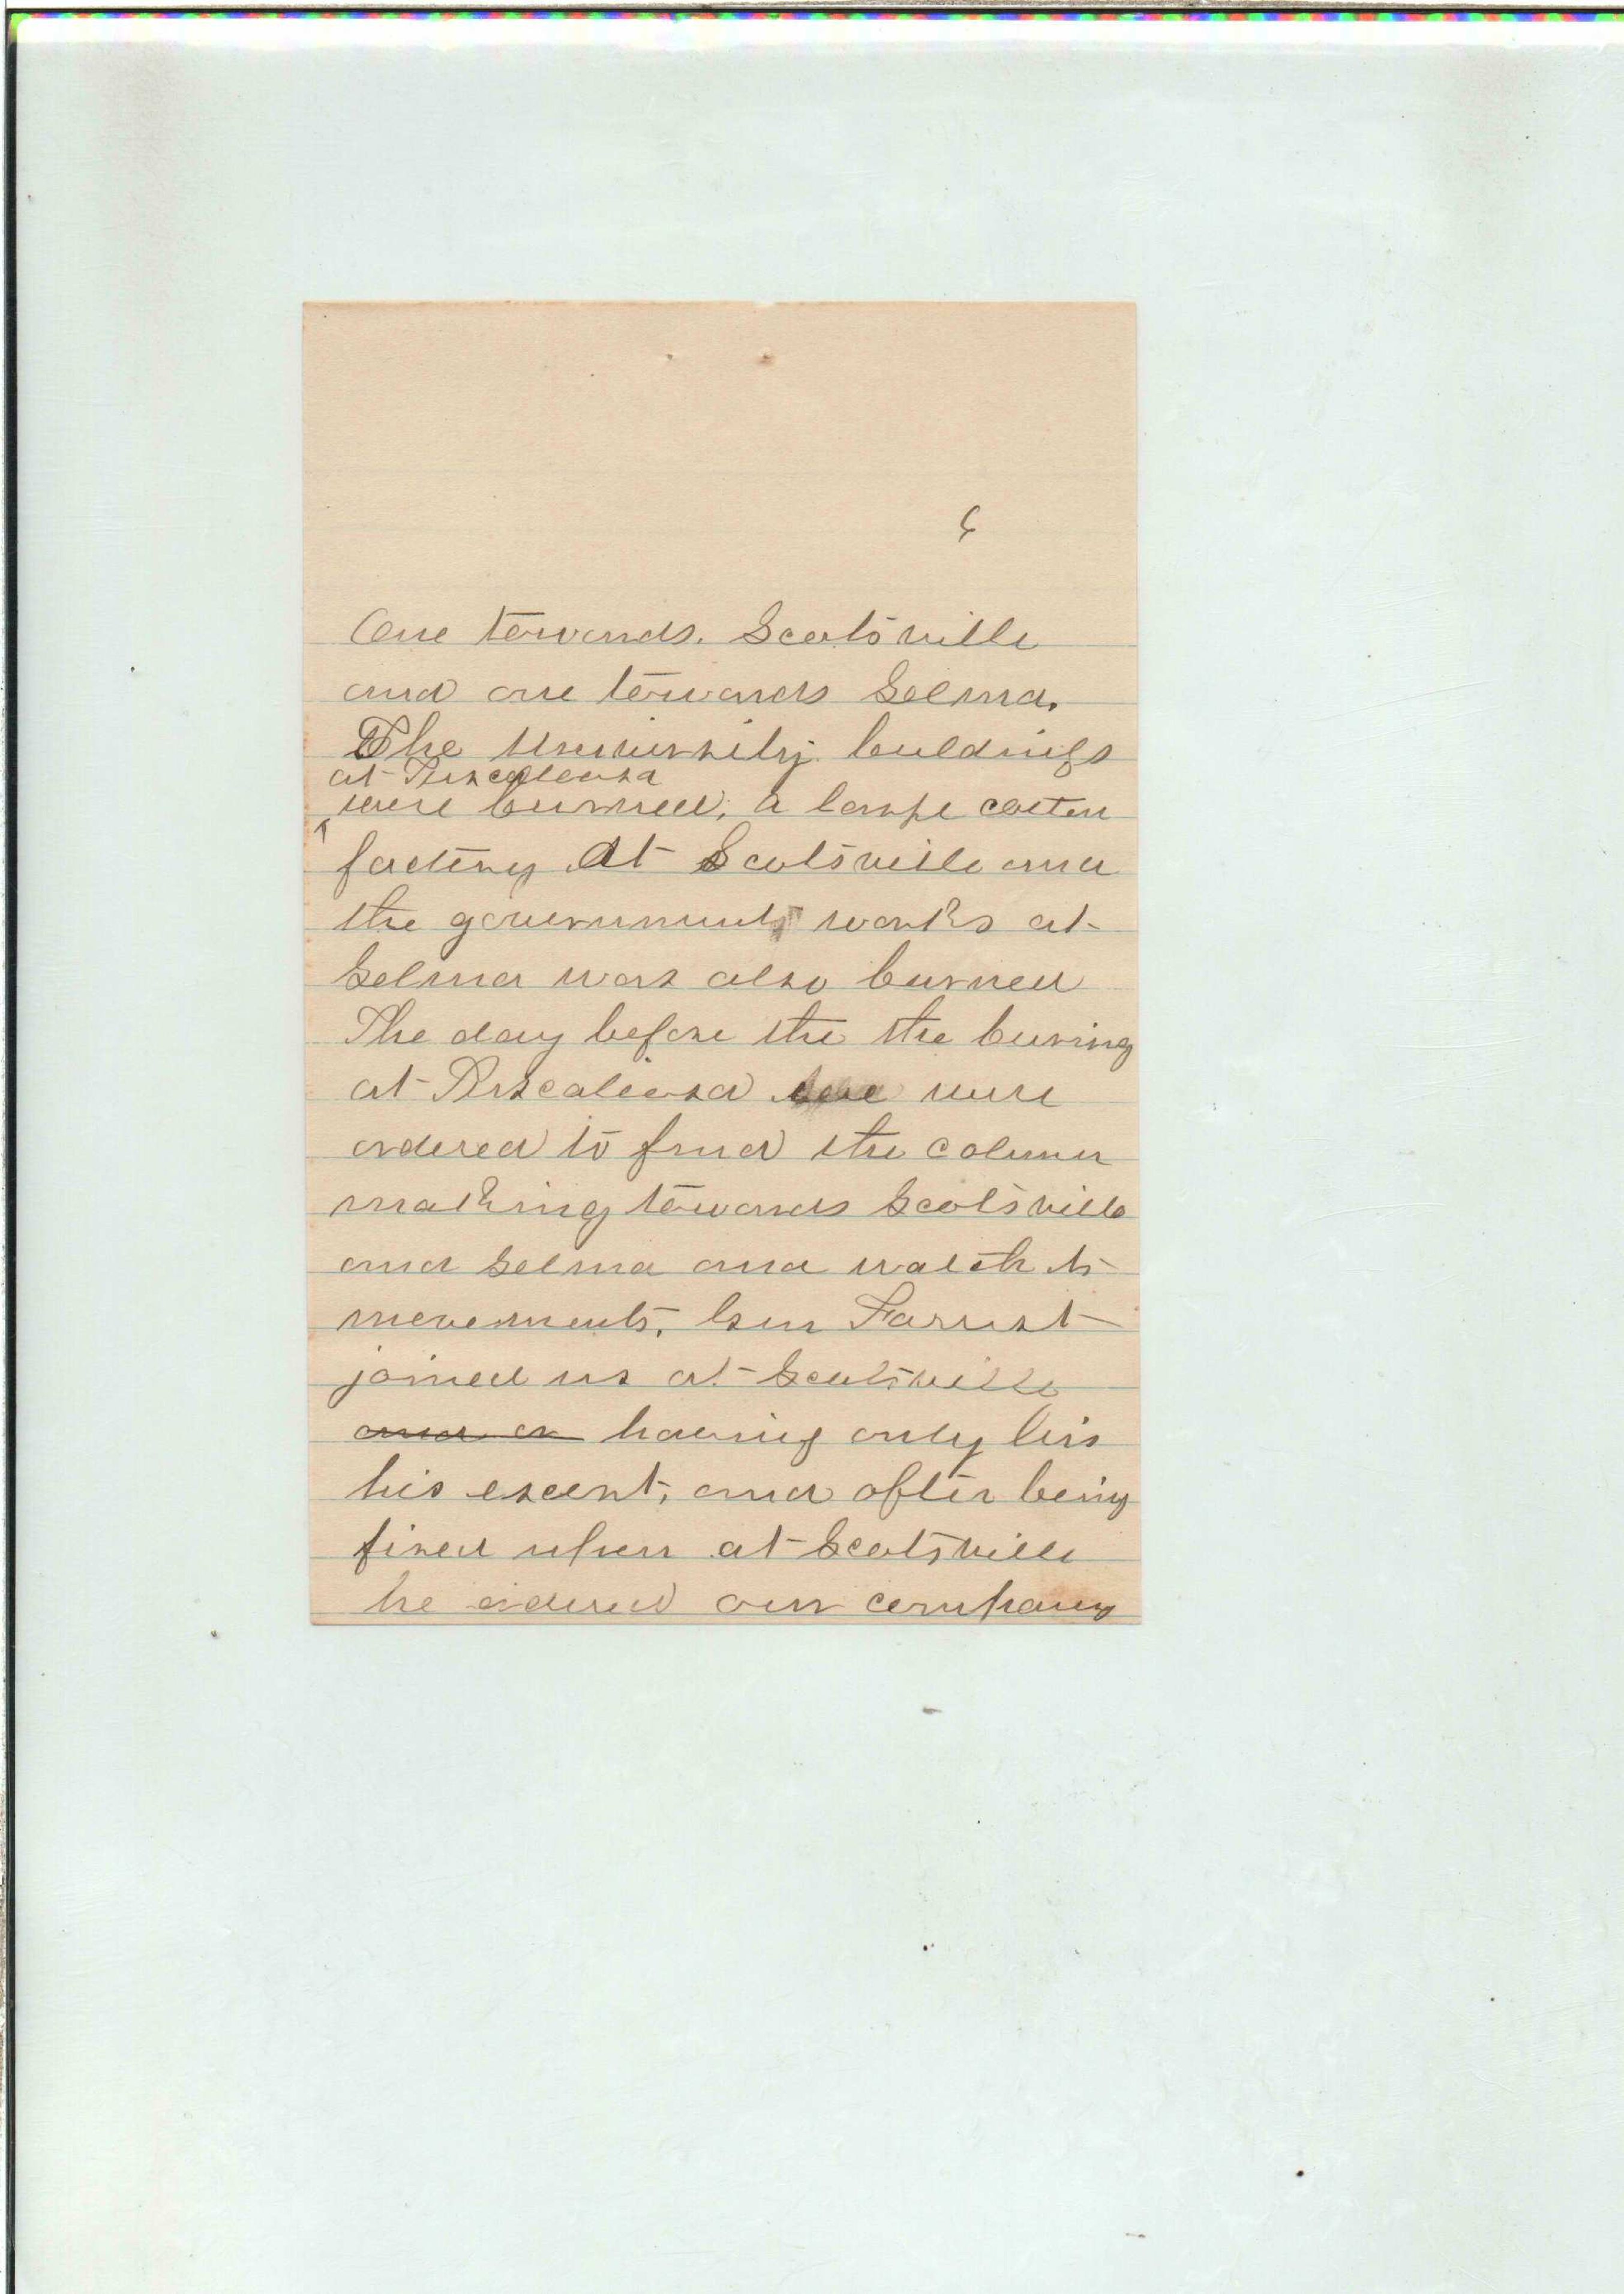 6
One towards. Scotsville
and one towards Selma.
The University buldings
at Tuscaloosa
were burned, a large cotten
factory At Scotsville and
the government works at
Selma was also burned
The day before the the buring
at Tuscaloosa we were
ordered to find the column
making towards Scotsville
and Selma and watch its
movements, Gen Forrest
joined us at Scotsville
and on having only his
his escort, and after being
fired upon at Scotsville
he ordered our company